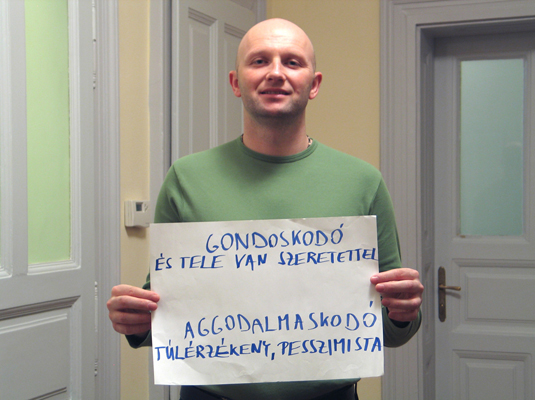 GONDOSKODÓ
ÉS TELE VAN SZERETETTEL
AGGODALMASKODÓ
TÚLÉRZÉKENY, PESSZIMISTA